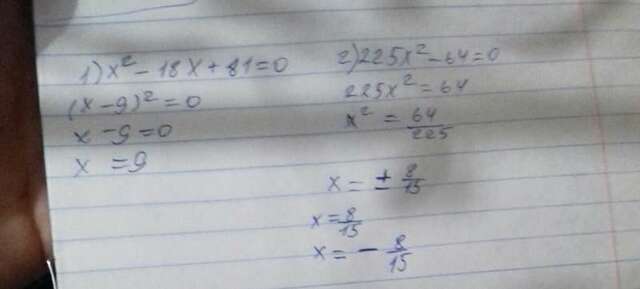 1) x² - 18x + 81 = 0
(x - 9)² = 0
x - 9 = 0
x = 9
2) 225x² - 64 = 0
225x² = 64
x² = 64/225
x = ± 8/15
x = 8/15
x = - 8/15